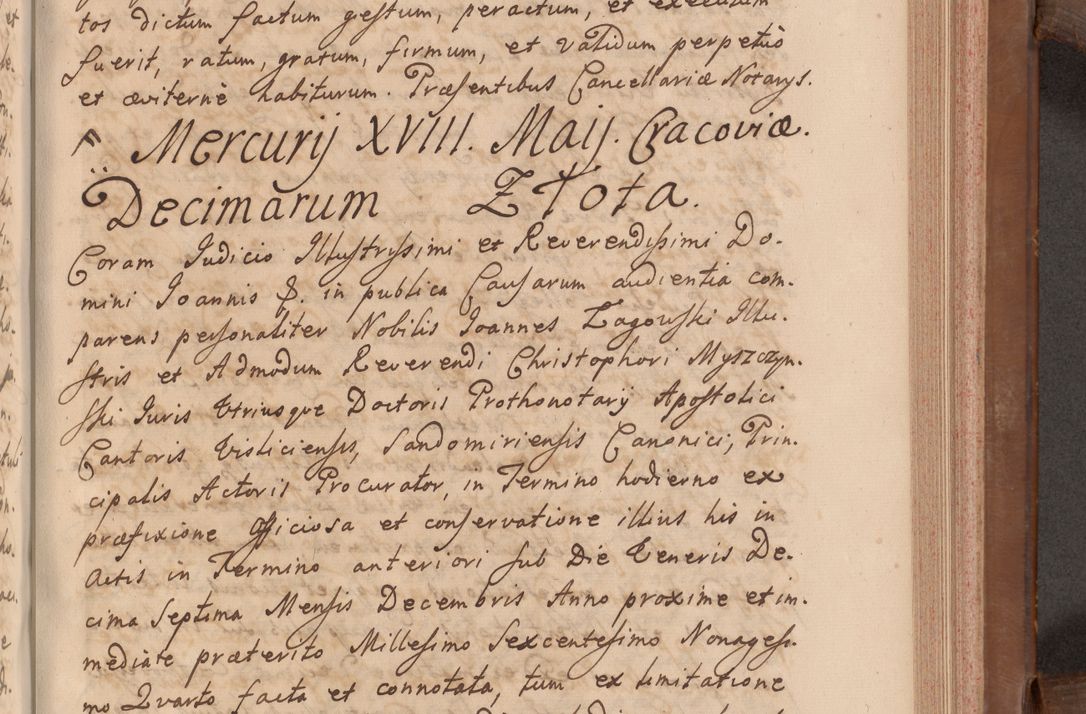 tos dictum factum gestum, peractum, et executum
fuerit, ratum, gratum, firmum, et validum perpetuò
et æviternè habiturum. Præsentibus Cancellariæ Notarys.
Mercurij XVIII. Maij. Cracoviæ.
Decimarum Złota.
Coram Iudicio Illustrissimi et Reverendissimi Do-
mini Ioannis &. in publica Causarum audientia com-
parens personaliter Nobilis Ioannes Zagowski Illu-
stris et Admodum Reverendi Christophori Myszczyn-
ski Iuris Utriusque Doctoris Prothonotarij Apostolici
Cantoris Visliciensis, Sandomiriensis Canonici, Prin-
cipalis Actoris Procurator, in Termino hodierno ex
præfixione Officiosa et conservatione illius his in
Actis in Termino anteriori sub Die Veneris De-
cima Septima Mensis Decembris Anno proxime et im-
mediate præterito Millesimo Sexcentesimo Nonagesi-
mo Quarto facta et connotata, tum ex limitatione